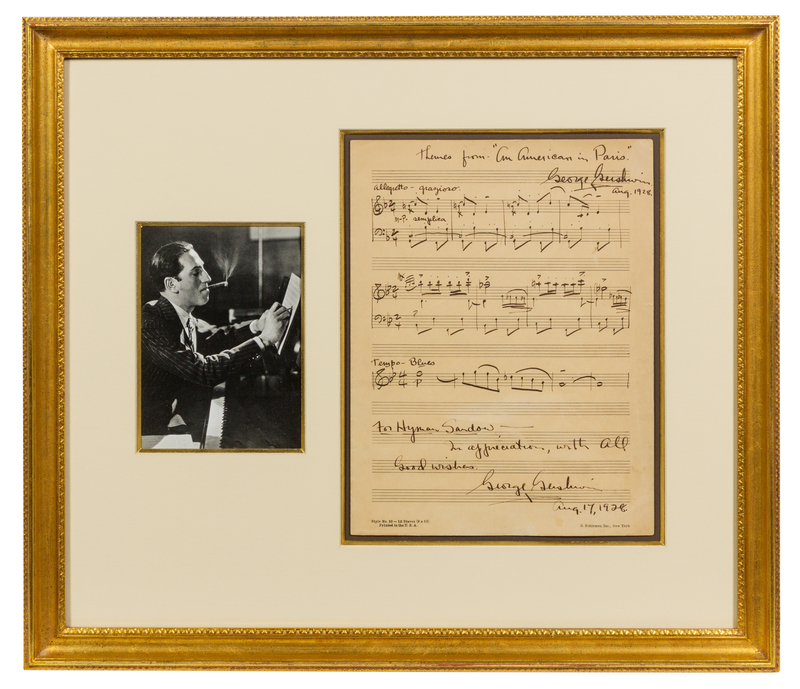 Themes from "An American in Paris."
George Gershwin
Aug. 1928
Allegretto - grazioso
mp semplice
Tempo - Blues
For Hyman Sandow —
In appreciation, with all
Good wishes.
George Gershwin
Aug. 17, 1928.
Printed in the U. S. A.
Inc., New York